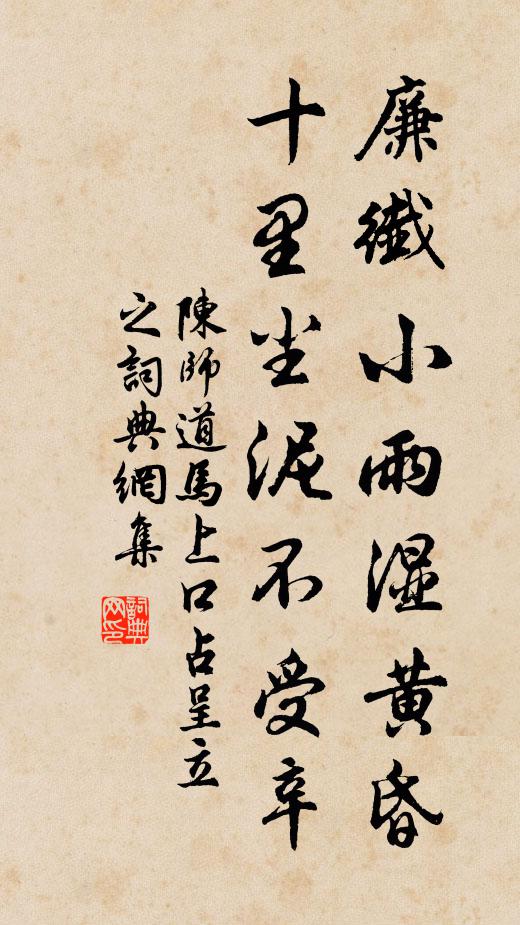 廉纖小雨湿黃昏
十里尘泥不受辛
陳師道馬上口占呈立
之詞典網集
詞典
网印